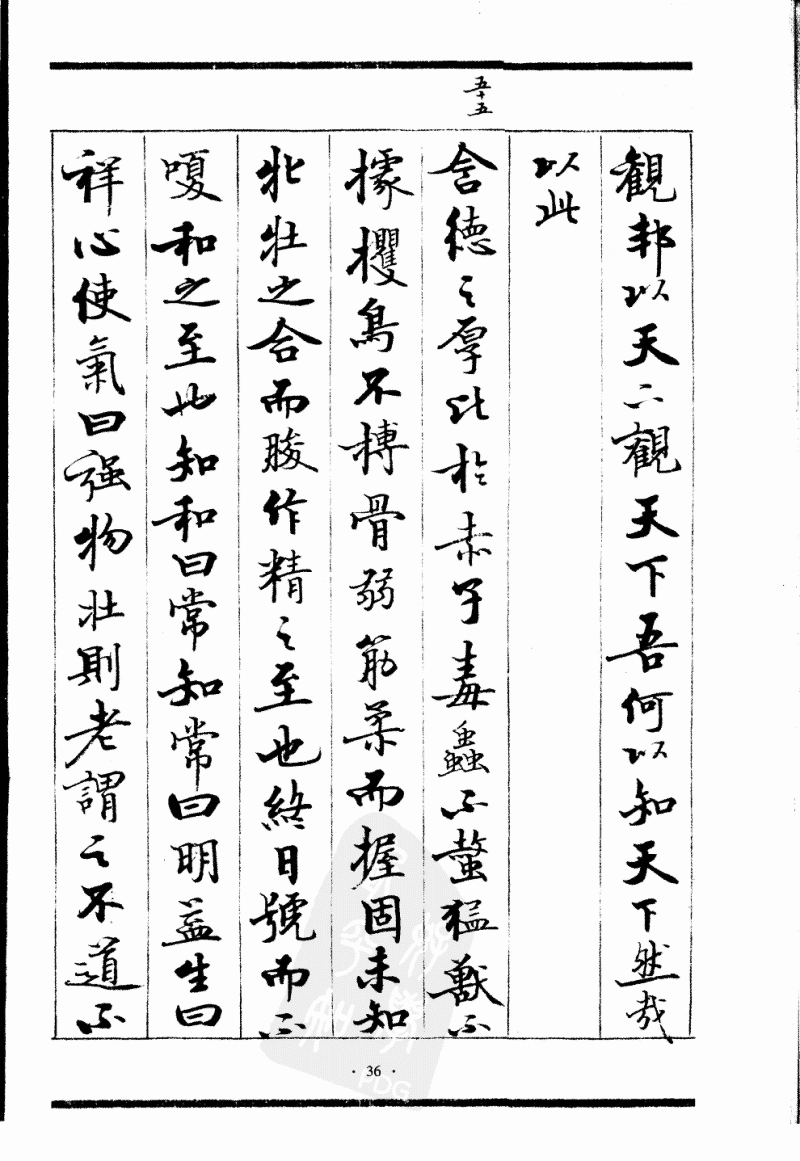 觀邦以天下觀天下吾何以知天下然哉
以此
五十五
含德之厚比於赤子毒蟲不螫猛獸不
據攫鳥不搏骨弱筋柔而握固未知
牝牡之合而朘作精之至也終日號而不
嗄和之至也知和曰常知常曰明益生曰
祥心使氣曰强物壯則老謂之不道不
· 36 ·
PDG